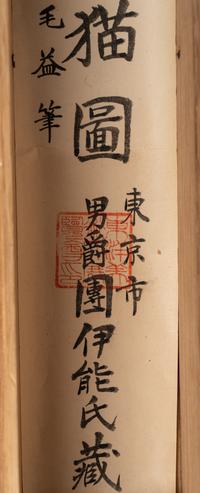 猫圖
毛益筆
東京市
男爵團伊能氏藏